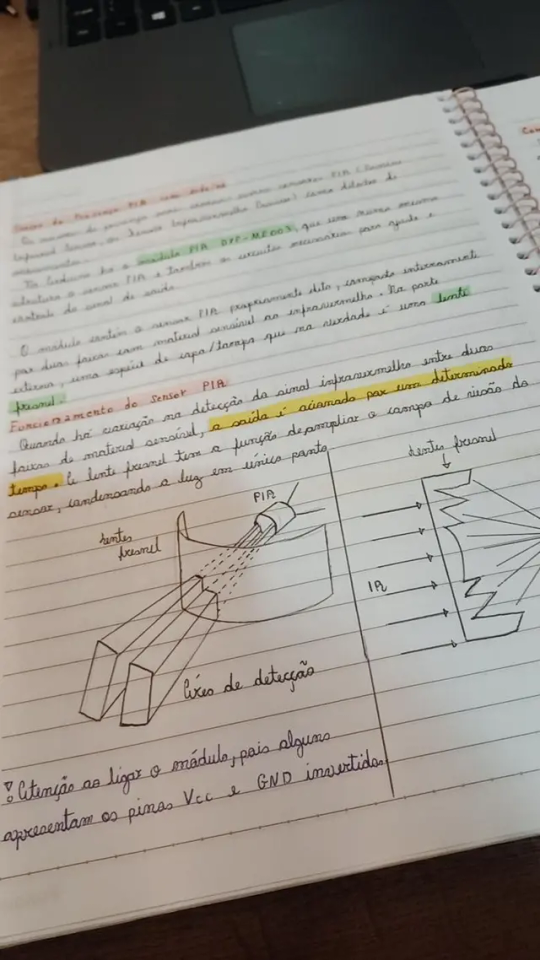 Sensor de Presença PIR com módulo
Os sensores de presença
Infrared Sensor, ou Sensor Infravermelho Passivo) como detector de
movimentos.
No Arduino há o módulo PIR DYP-ME003, que
estrutura o sensor PIR e também os circuitos necessários para ajuste e
controle do sinal de saída.
O módulo contém o sensor PIR propriamente dito, composto internamente
por duas faixas com material sensível ao infravermelho. Na parte
externa, uma espécie de capa/tampa que na verdade é uma lente
fresnel.
Funcionamento do Sensor PIR
Quando há variação na detecção do sinal infravermelho entre duas
faixas do material sensível, a saída é acionada por um determinado
tempo. A lente fresnel tem a função de ampliar o campo de visão do
sensor, condensando a luz em único ponto
Lentes
fresnel
PIR
Eixos de detecção
Lentes fresnel
IR
Atenção ao ligar o módulo, pois alguns
apresentam os pinos Vcc e GND invertidos